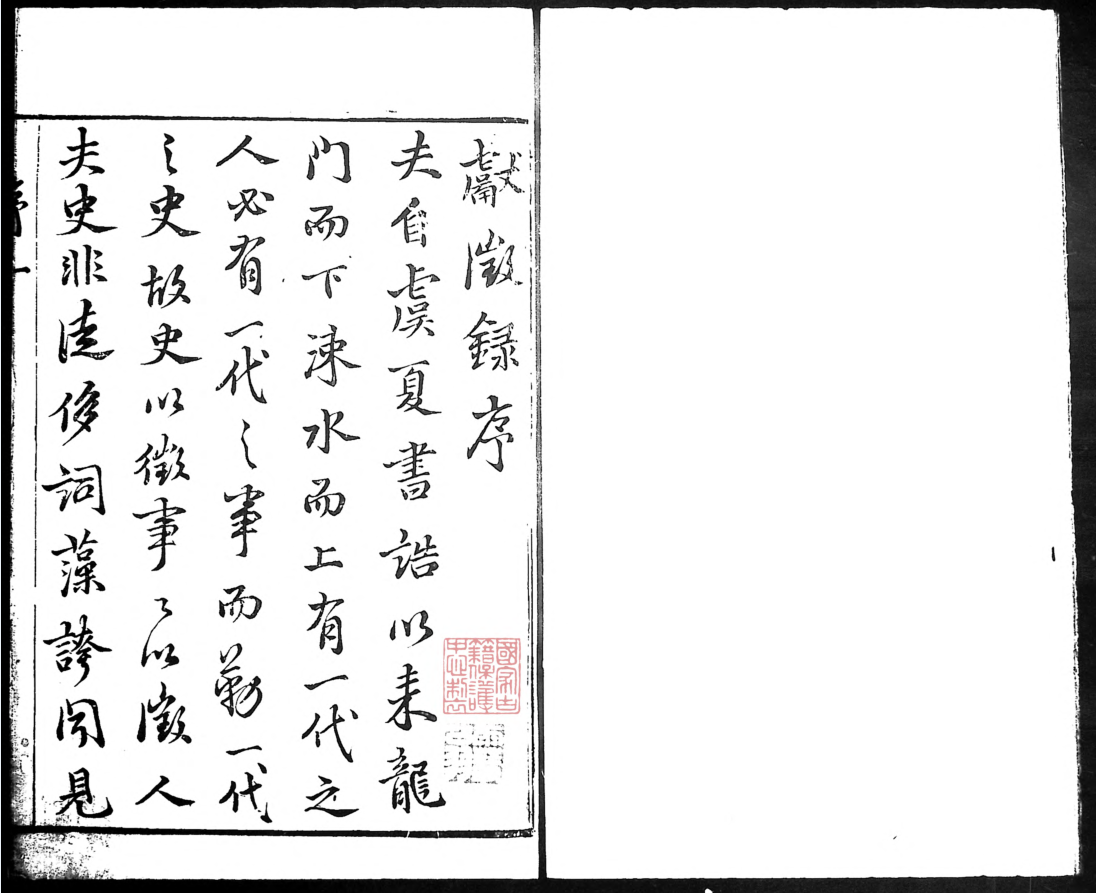 獻徵録序
夫自虞夏書誥以来龍
門而下涑水而上有一代之
人必有一代之事而勒一代
之史故史以徵事〻以徵人
夫史非徒侈詞藻誇聞見
序
一
國家古
籍保護
中心製